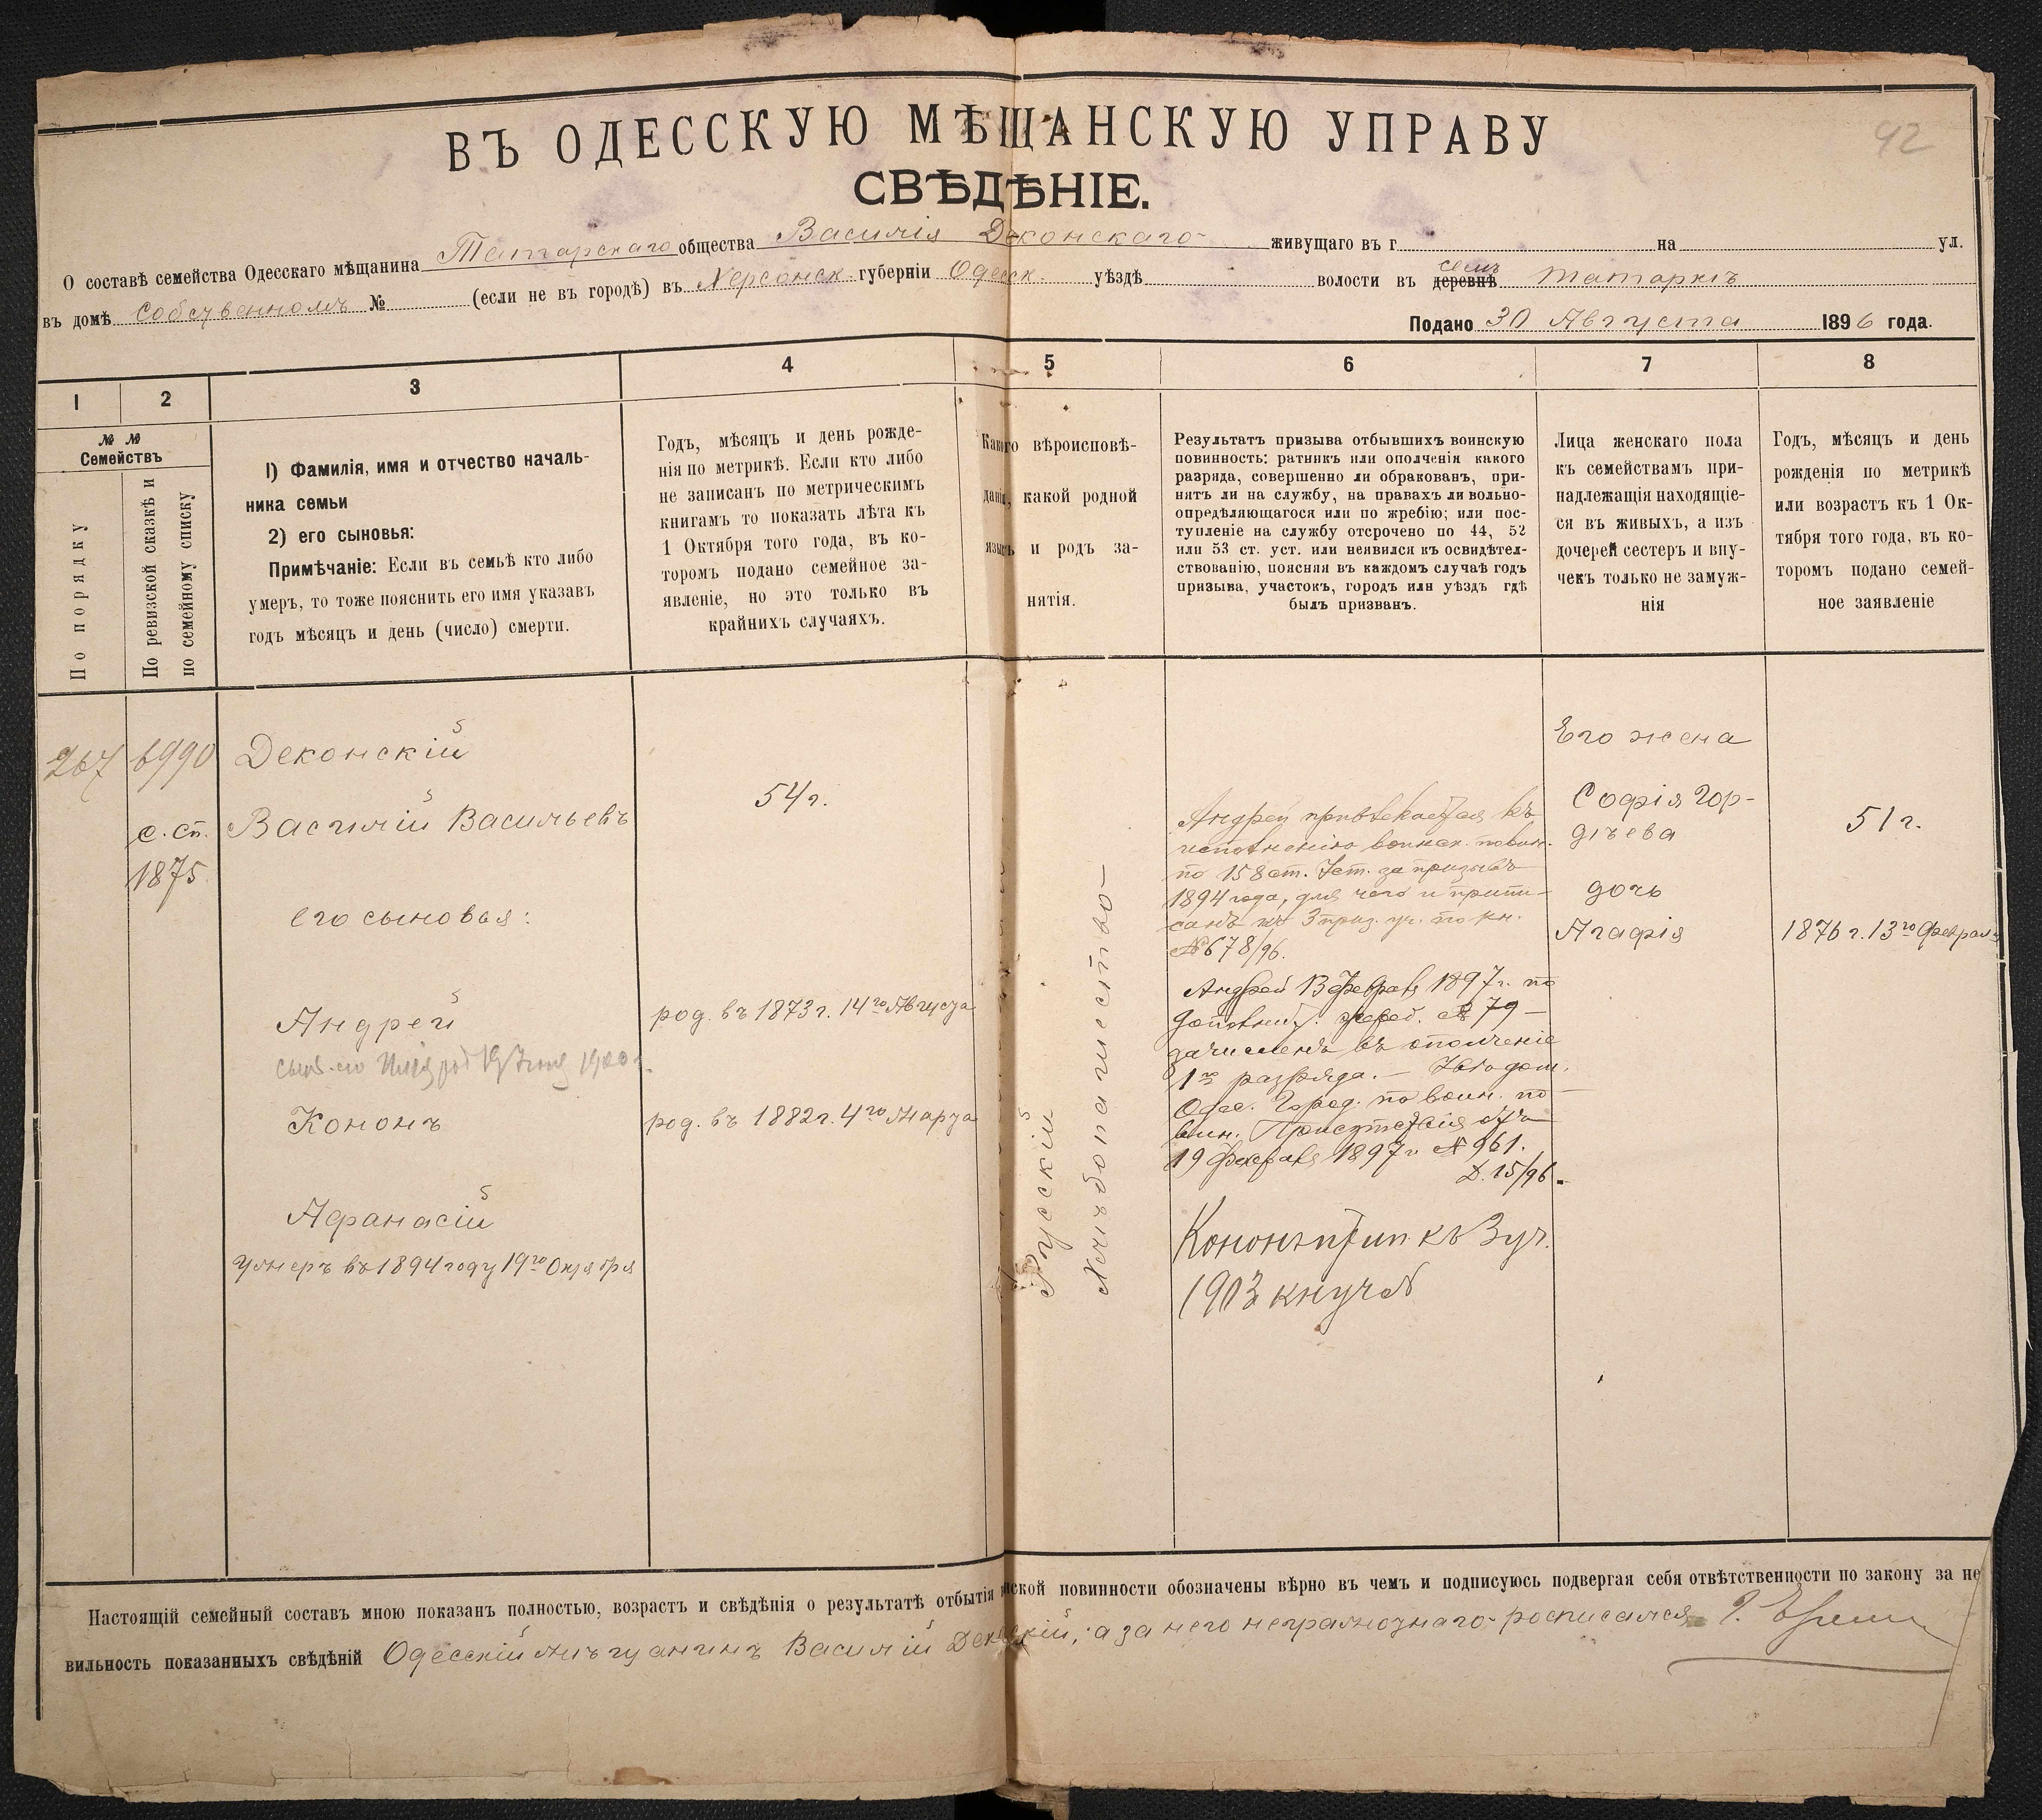 92
ВЪ ОДЕССКУЮ МѢЩАНСКУЮ УПРАВУ
СВѢДѢНІЕ.
О составѣ семейства Одесскаго мѣщанина Татарскаго общества Василія Деконскаго живущаго въ г. на ул.
въ домѣ собственномъ № (если не въ городѣ) въ Херсонск. губерніи Одесск. уѣздѣ волости въ деревнѣ селѣ Татаркѣ
Подано 30 Августа 1896 года.
1 2 3 4 5 6 7 8
№ №
Семействъ
По порядку
По ревизской сказкѣ и
по семейному списку
1) Фамилія, имя и отчество началь-
ника семьи
2) его сыновья:
Примѣчаніе: Если въ семьѣ кто либо
умеръ, то тоже пояснить его имя указавъ
годъ мѣсяцъ и день (число) смерти.
Годъ, мѣсяцъ и день рожде-
нія по метрикѣ. Если кто либо
не записанъ по метрическимъ
книгамъ то показать лѣта къ
1 Октября того года, въ ко-
торомъ подано семейное за-
явленіе, но это только въ
крайнихъ случаяхъ.
Какого вѣроисповѣ-
данія, какой родной
языкъ и родъ за-
нятія.
Результатъ призыва отбывшихъ воинскую
повинность: ратникъ или ополченія какого
разряда, совершенно ли обракованъ, при-
нятъ ли на службу, на правахъ ли вольно-
опредѣляющагося или по жребію; или пос-
тупленіе на службу отсрочено по 44, 52
или 53 ст. уст. или неявился къ освидѣтел-
ствованію, поясняя въ каждомъ случаѣ годъ
призыва, участокъ, городъ или уѣздъ гдѣ
былъ призванъ.
Лица женскаго пола
къ семействамъ при-
надлежащія находящіе-
ся въ живыхъ, а изъ
дочерей сестеръ и вну-
чекъ только не замуж-
нія
Годъ, мѣсяцъ и день
рожденія по метрикѣ
или возрастъ къ 1 Ок-
тября того года, въ ко-
торомъ подано семей-
ное заявленіе
267
6990
с. сп.
1875
Деконскій
Василій Васильевъ
его сыновья:
Андрей
сынъ его род 19 Іюня 1900 г.
Кононъ
Афанасій
умеръ въ 1894 году 19го Октября
54 г.
род. въ 1873 г. 14го Августа
род. въ 1882 г. 4го Марта
Русскій
Хлѣбопашество
Андрей привлекается къ
исполненію воинск. повин.
по 158 ст. Уст. за призывъ
1894 года, для чего и припи-
санъ къ 3 приз. уч. по кн.
№ 678/96.
Андрей 13 Февраля 1897 г. по
дополнит. жереб. № 79 –
зачисленъ въ ополченіе
1го разряда. – Увѣдом.
Одес. Город. по воин. по-
вин. Присутствія отъ
19 Февраля 1897 г. № 961.
Д. 15/96.
Кононъ прип. къ 3 уч.
1903 кн уч №
Его жена
Софія Гор-
дѣева
дочь
Агафія
51 г.
1876 г. 13го Февраля
Настоящій семейный составъ мною показанъ полностью, возрастъ и свѣдѣнія о результатѣ отбытія воинской повинности обозначены вѣрно въ чемъ и подписуюсь подвергая себя отвѣтственности по закону за не
вильность показанныхъ свѣдѣній Одесскій мѣщанинъ Василій Деконскій, а за него неграмотнаго росписался